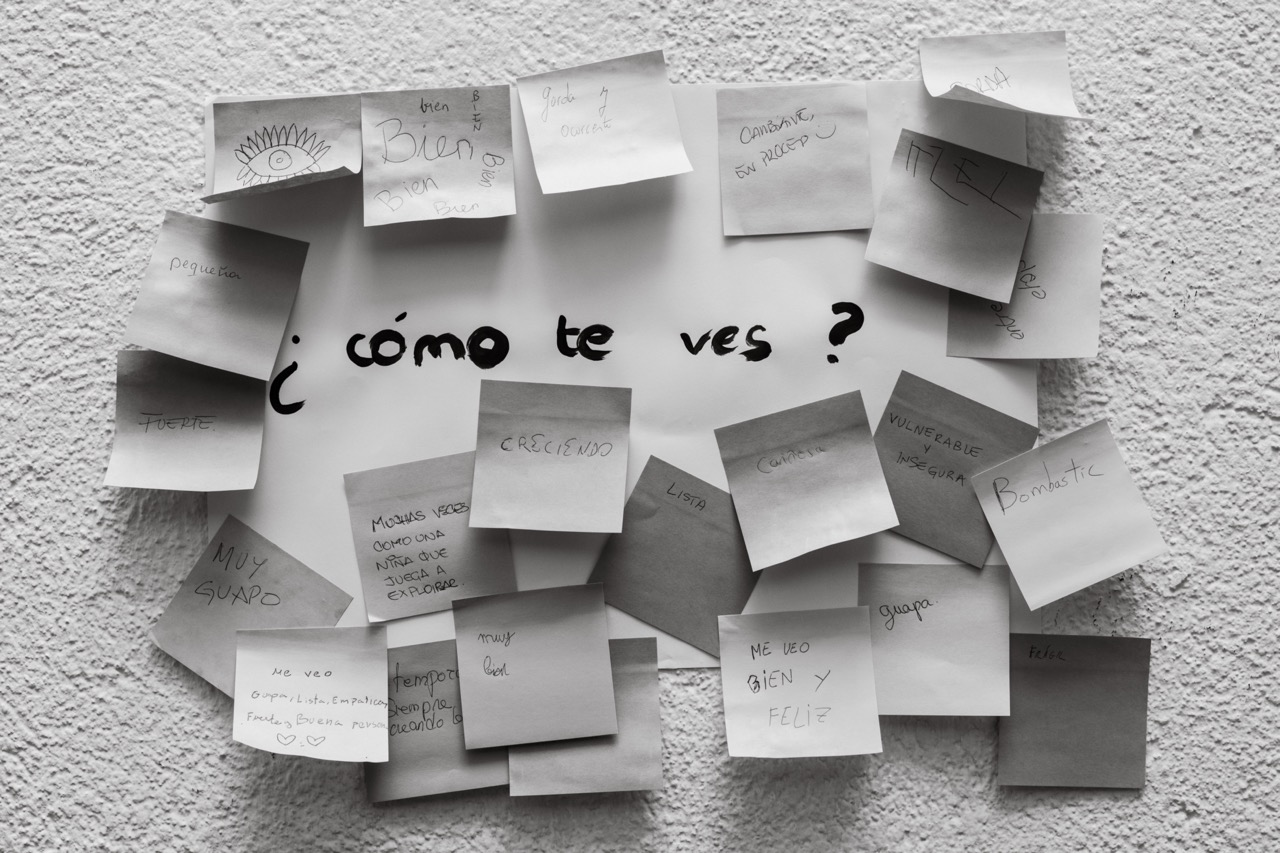 bien
BIEN
Bien
Bien
Bien
Bien
gorda y
CAMBIANTE,
EN PROCESO
MZEL
pequeña
¿cómo te ves?
FUERTE.
CRECIENDO
VULNERABLE
Y
INSEGURA
Bombastic
LISTA
MUCHAS VECES
COMO UNA
NIÑA QUE
JUEGA A
EXPLORAR.
MUY
GUAPO
guapa.
muy
bien
ME VEO
BIEN Y
FELIZ
me veo
Guapa, Lista, Empatica,
Fuerte y Buena persona
tempor
siempre
creando